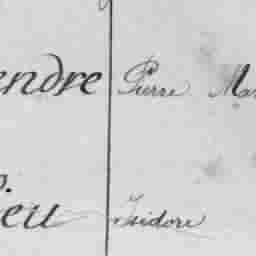 endre Pierre Mar
o.
eu Isidore